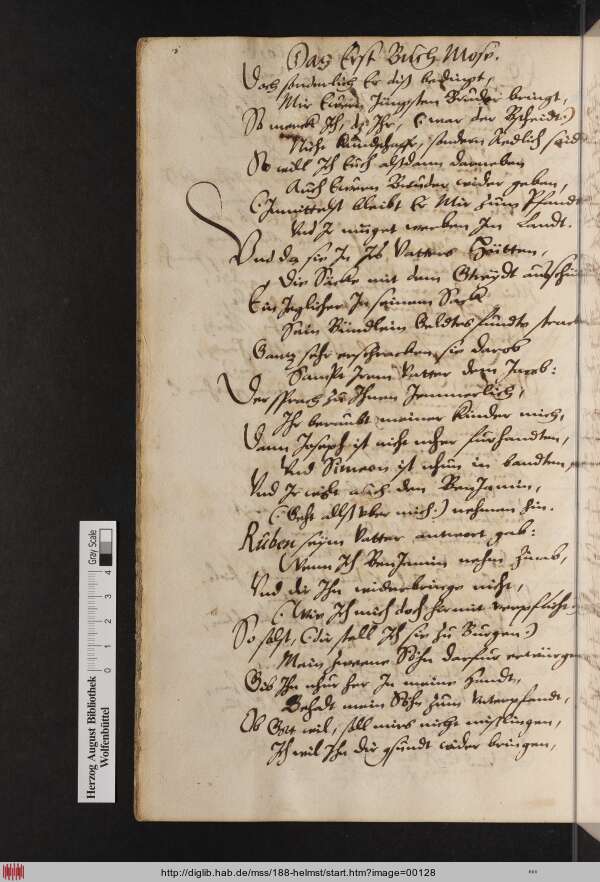 Das Erst Buch Mose.
Doch sonderlich Er dist bedingt,
Mir Eurn Jungsten Bruder bringt,
So merck Ich, dz Ihr, (: war der Bscheidt:)
Nicht Kundschaffr, sondern Redlich seid
So will Ich Euch alsdann darneben
Auch Euren Bruder wider geben,
(: Inmittelst bleibt Er Mir zum Pfandt
Vnd Ir muget werben Im Landt.
Vnd da sie In Irs Vatters Hütten,
Die Säcke mit dem Gtreydt außschütten
Ein Jeglicher In seinem Sack
Sein Bündlein Geldtes fundte strack
Gantz sehr erschracken sie darob
Sampt Irem Vatter dem Jacob:
Der sprach zu Ihnen Jemmerlich,
Ihr beraubt meiner Kinder mich,
Dann Joseph ist nicht mher furhandten,
Vnd Simeon ist nhun in bandten,
Vnd Ir wolt auch den BenJamin,
(: Geht alls vber mich:) nehmen hin.
Ruben seim Vatter antwort gab:
Wenn Ich BenJamin nehm hinab,
Vnd dir Ihn widerbringe nicht,
(: Wie Ich mich doch hiermit verpflicht
So solst, (: dir stell Ich sie zu Burgen:)
Mein zweene Söhn darfur erwürgen
Gib Ihn nhur her In meine Handt,
Behalt mein Söhn zum Vnterpfandt,
Ob Gott wil, soll mirs nicht mißlingen,
Ich wil Ihn dir gsundt wider bringen,
Herzog August Bibliothek
Wolfenbüttel
Gray Scale
0 1 2 3 4
http://diglib.hab.de/mss/188-helmst/start.htm?image=00128